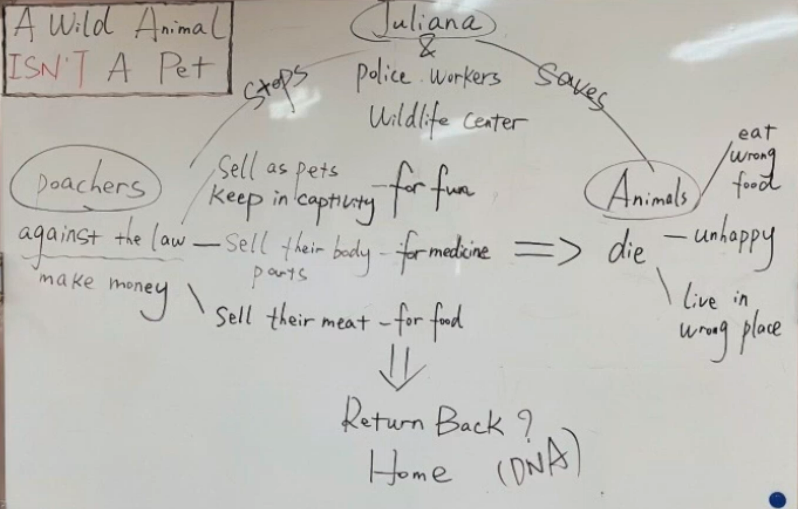 A Wild Animal
ISN'T A Pet
Juliana
&
police workers
Wildlife Center
stops
saves
poachers
against the law
make money
Sell as pets
keep in captivity - for fun
Sell their body - for medicine
parts
Sell their meat - for food
=>
Animals
die
eat
wrong
food
- unhappy
live in
wrong place
Return Back ?
Home (DNA)